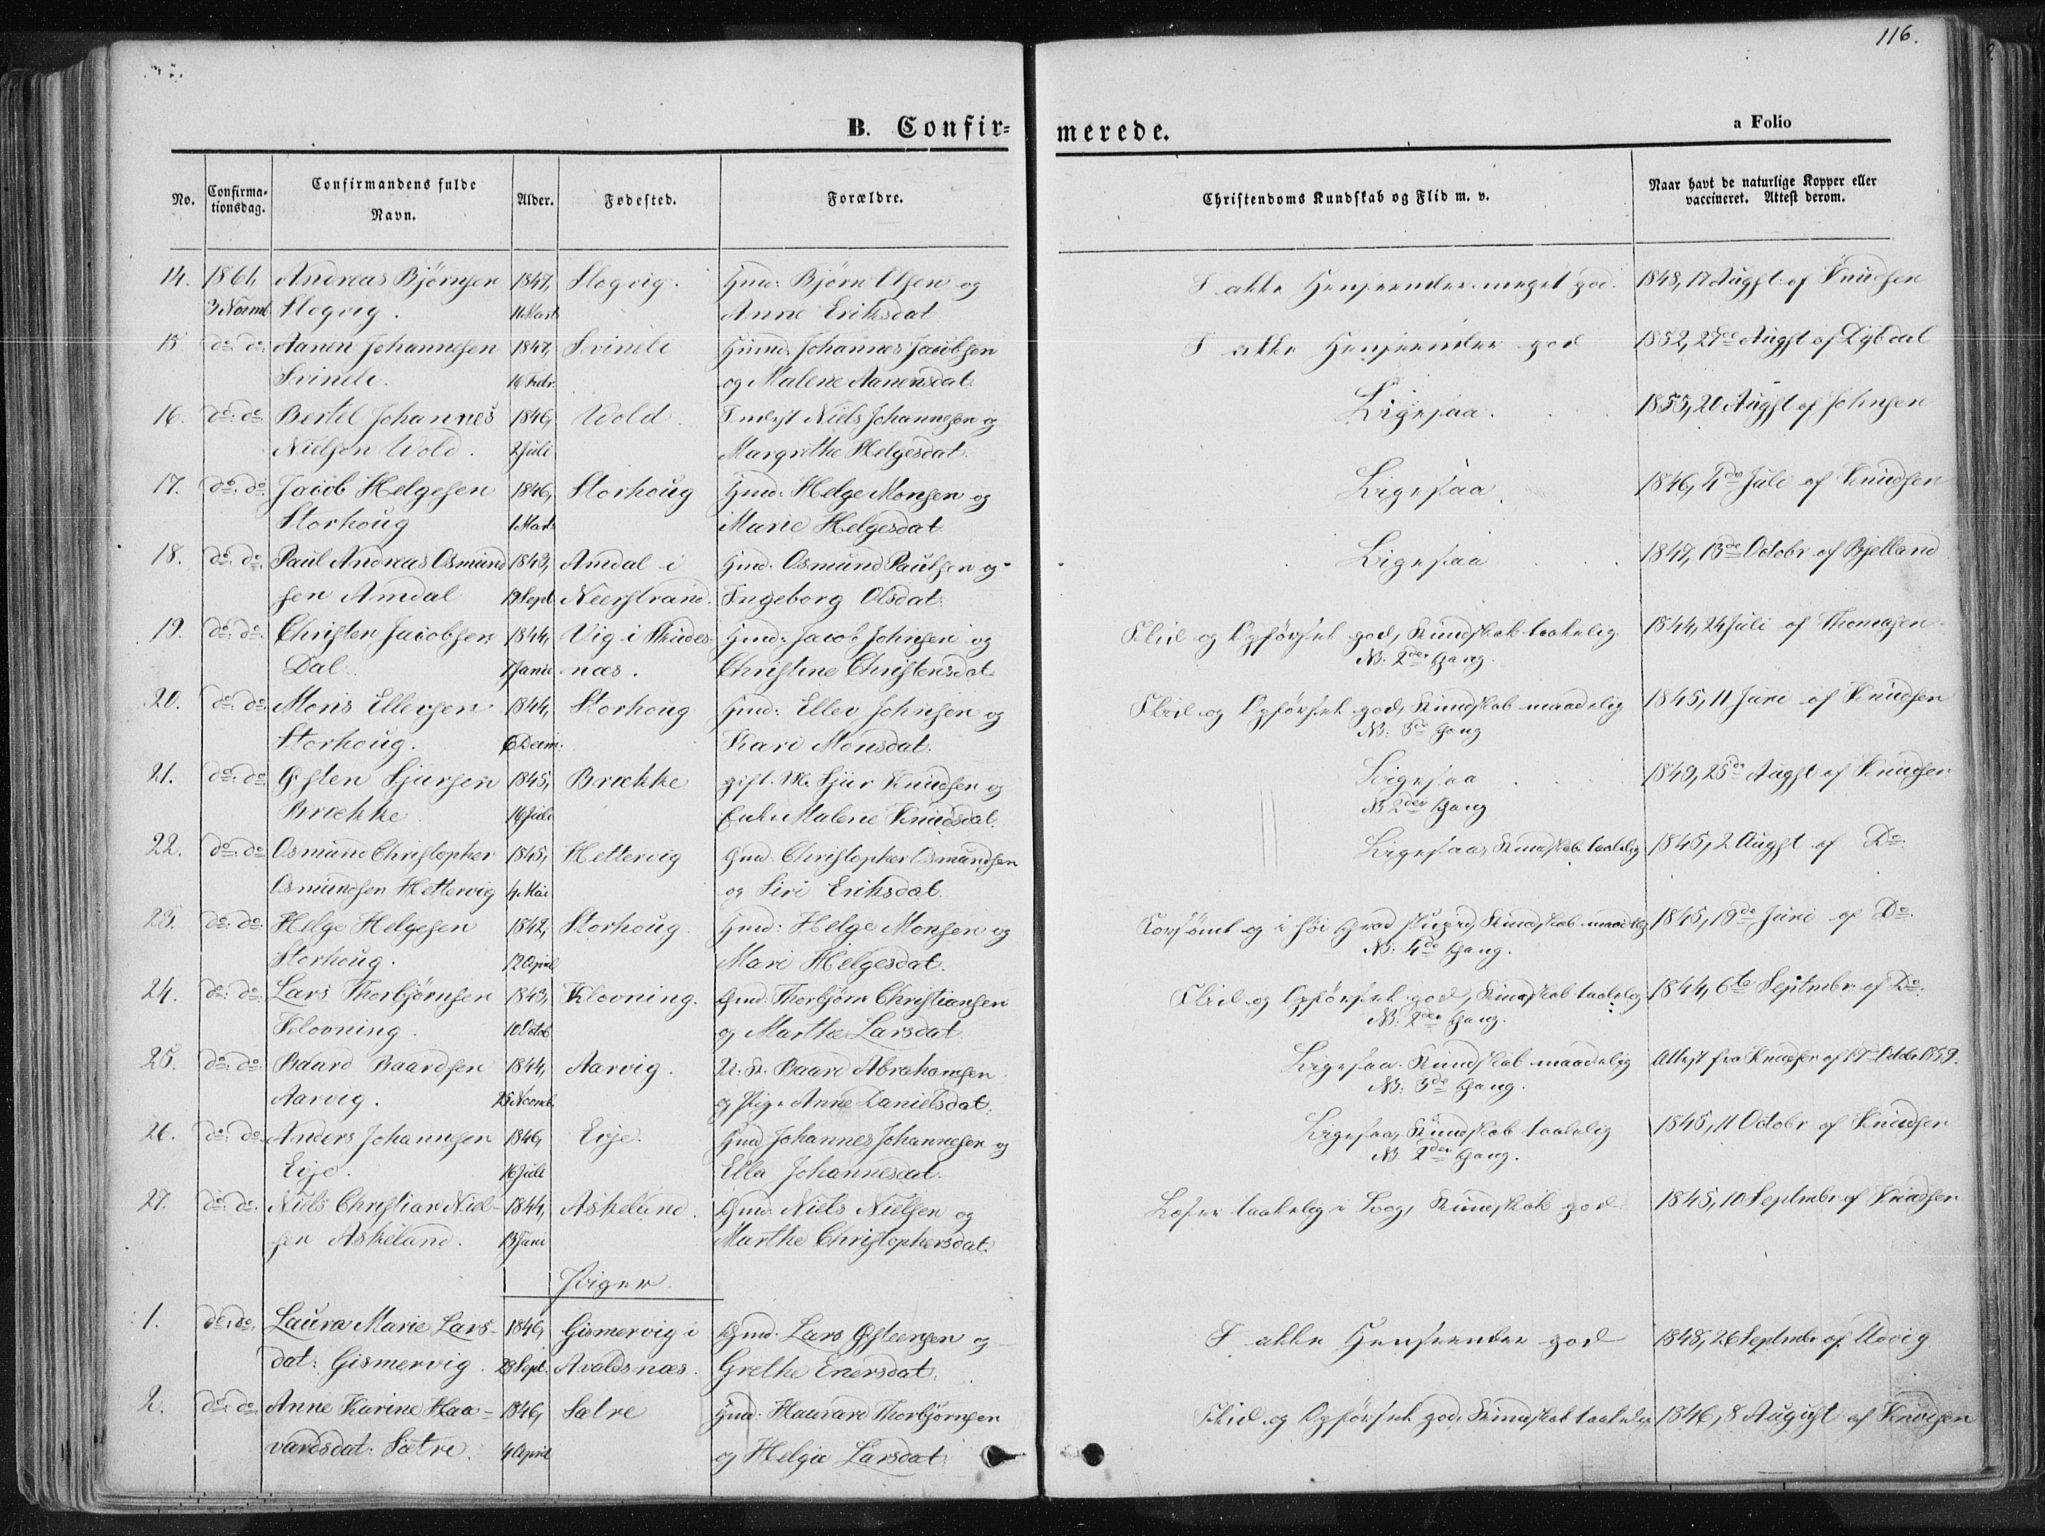 116.
B. Confir=
merede.
a Folio
No.
Confirma-
tionsdag.
Confirmandens fulde
Navn.
Alder.
Fødested.
Forældre.
Christendoms Kundskab og Flid m. v.
Naar havt de naturlige Kopper eller
vaccineret. Attest derom.
14. 1861, Andreas Bjørnsen 1847, Stogvig. Gmd: Bjørn Olsen og I alle Henseender meget god. 1848, 17 Augst af Knudsen
3 Novmb. Stogvig. 11 Mart Anne Eriksdat.
15 do: do: Aanen Johannesen 1847, Svinele Huusmd: Johannes Jacobsen I alle Henseender god 1852, 27de Augst af Dybdal
Svinele. 16 Febr. og Malene Aanensdat.
16. do: do: Bertel Johannes 1846, Vold. Inderst Niels Johannesen og Ligesaa. 1853, 20 Augst af Johnsen
Nielsen Vold. 2 Juli Margrethe Helgesdat.
17. do: do: Jacob Helgesen 1846, Storhoug Gmd: Helge Monsen og Ligesaa. 1846, 4de Juli af Knudsen
Storhoug 1 Mart Marie Helgesdat.
18. do: do: Paul Andreas Osmund 1843, Amdal i Gmd: Osmund Paulsen og Ligesaa 1847, 13de Octobr af Bjelland
sen Amdal 19 Sept. Neerstrand. Ingeborg Olsdat.
19. do: do: Christen Jacobsen 1844, Vig i Skudes- Gmd: Jacob Johnsen og Flid og Opførsel god, Kundskab taalelig 1844, 24 Juli af Thomasen
Dal. næs. Christine Christensdat. NB. 2den Gang.
20. do: do: Mons Ellevsen 1844, Storhoug Gmd: Ellev Johnsen og Flid og Opførsel god, Kundskab maadelig 1845, 11 Juni af Knudsen
Storhoug. 6 Decm: Kari Monsdat. NB: Gang
21. do: do: Østen Sjursen 1845, Brække gift M. Sjur Knudsen og Ligesaa 1849, 25de Augst af Knudsen
Brække Enke Malene Knudsdat. NB 2den Gang
22. do: do: Osmund Christopher 1845, Hettervig Gmd: Christopher Osmundsen Ligesaa, Kundskab taalelig 1845, 2 Augst af Do:
Osmundsen Hettervig 4 Mai og Siri Eriksdat.
23. do: do: Helge Helgesen 1842, Storhoug. Gmd: Helge Monsen og Forsømt og i høi Grad stupid, Kundskab maadelig 1845, 19de Juni af Do:
Storhoug. 12 April Mari Helgesdat. NB: 4de Gang.
24. do: do: Lars Thorbjørnsen 1843, Klovning. Gmd: Thorbjørn Christiansen Flid og Opførsel god, Kundskab taalelig 1844, 6te Septmbr af Do:
Klovning. 10 Octob og Marthe Larsdat. NB: 2den Gang.
25. do: do: Baard Baardsen 1844, Aarvig. U. K. Baard Abrahamsen Ligesaa. Kundskab maadelig Attest fra Knudsen af Octobr 1859.
Aarvig. 25 Novmb. og Pige Anne Danielsdat. NB: 3de Gang.
26. do: do: Anders Johannesen 1846, Eije. Gmd Johannes Johannesen og Ligesaa, Kundskab taalelig 1845, 11 Octobr af Knudsen
Eije. 16 Juli Ella Johannesdat. NB. 2den Gang.
27. do: do: Niels Christian Niel- 1844, Askeland. Gmd: Niels Nielsen og Læser taalelig i Bog, Kundskab god 1845, 10 Septmbr af Knudsen
sen Askeland. 13 Juni Marthe Christophersdat.
Piger.
1. do: do: Laura Marie Lars- 1846, Gismervig i Gmd: Lars Østensen og I alle Henseender god 1848, 26 Septmbr af Udvig
dat: Gismervig. 28 Sept. Avaldsnæs. Grethe Enersdat.
2. do: do: Anne Karine Haa- 1846, Sætre Gmd: Haavard Thorbjørnsen Flid og Opførsel god, Kundskab taalelig 1846, 8 August af Knudsen
vardsdat: Sætre. 4 April og Helga Larsdat.